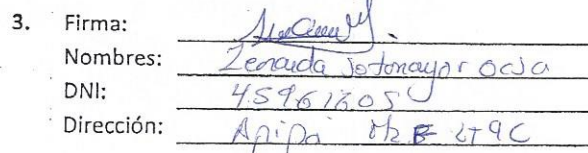 3. Firma:
Nombres: Zenaida Sotomayor Ocsa
DNI: 45961605
Dirección: Apipa Mz F Lt 9C